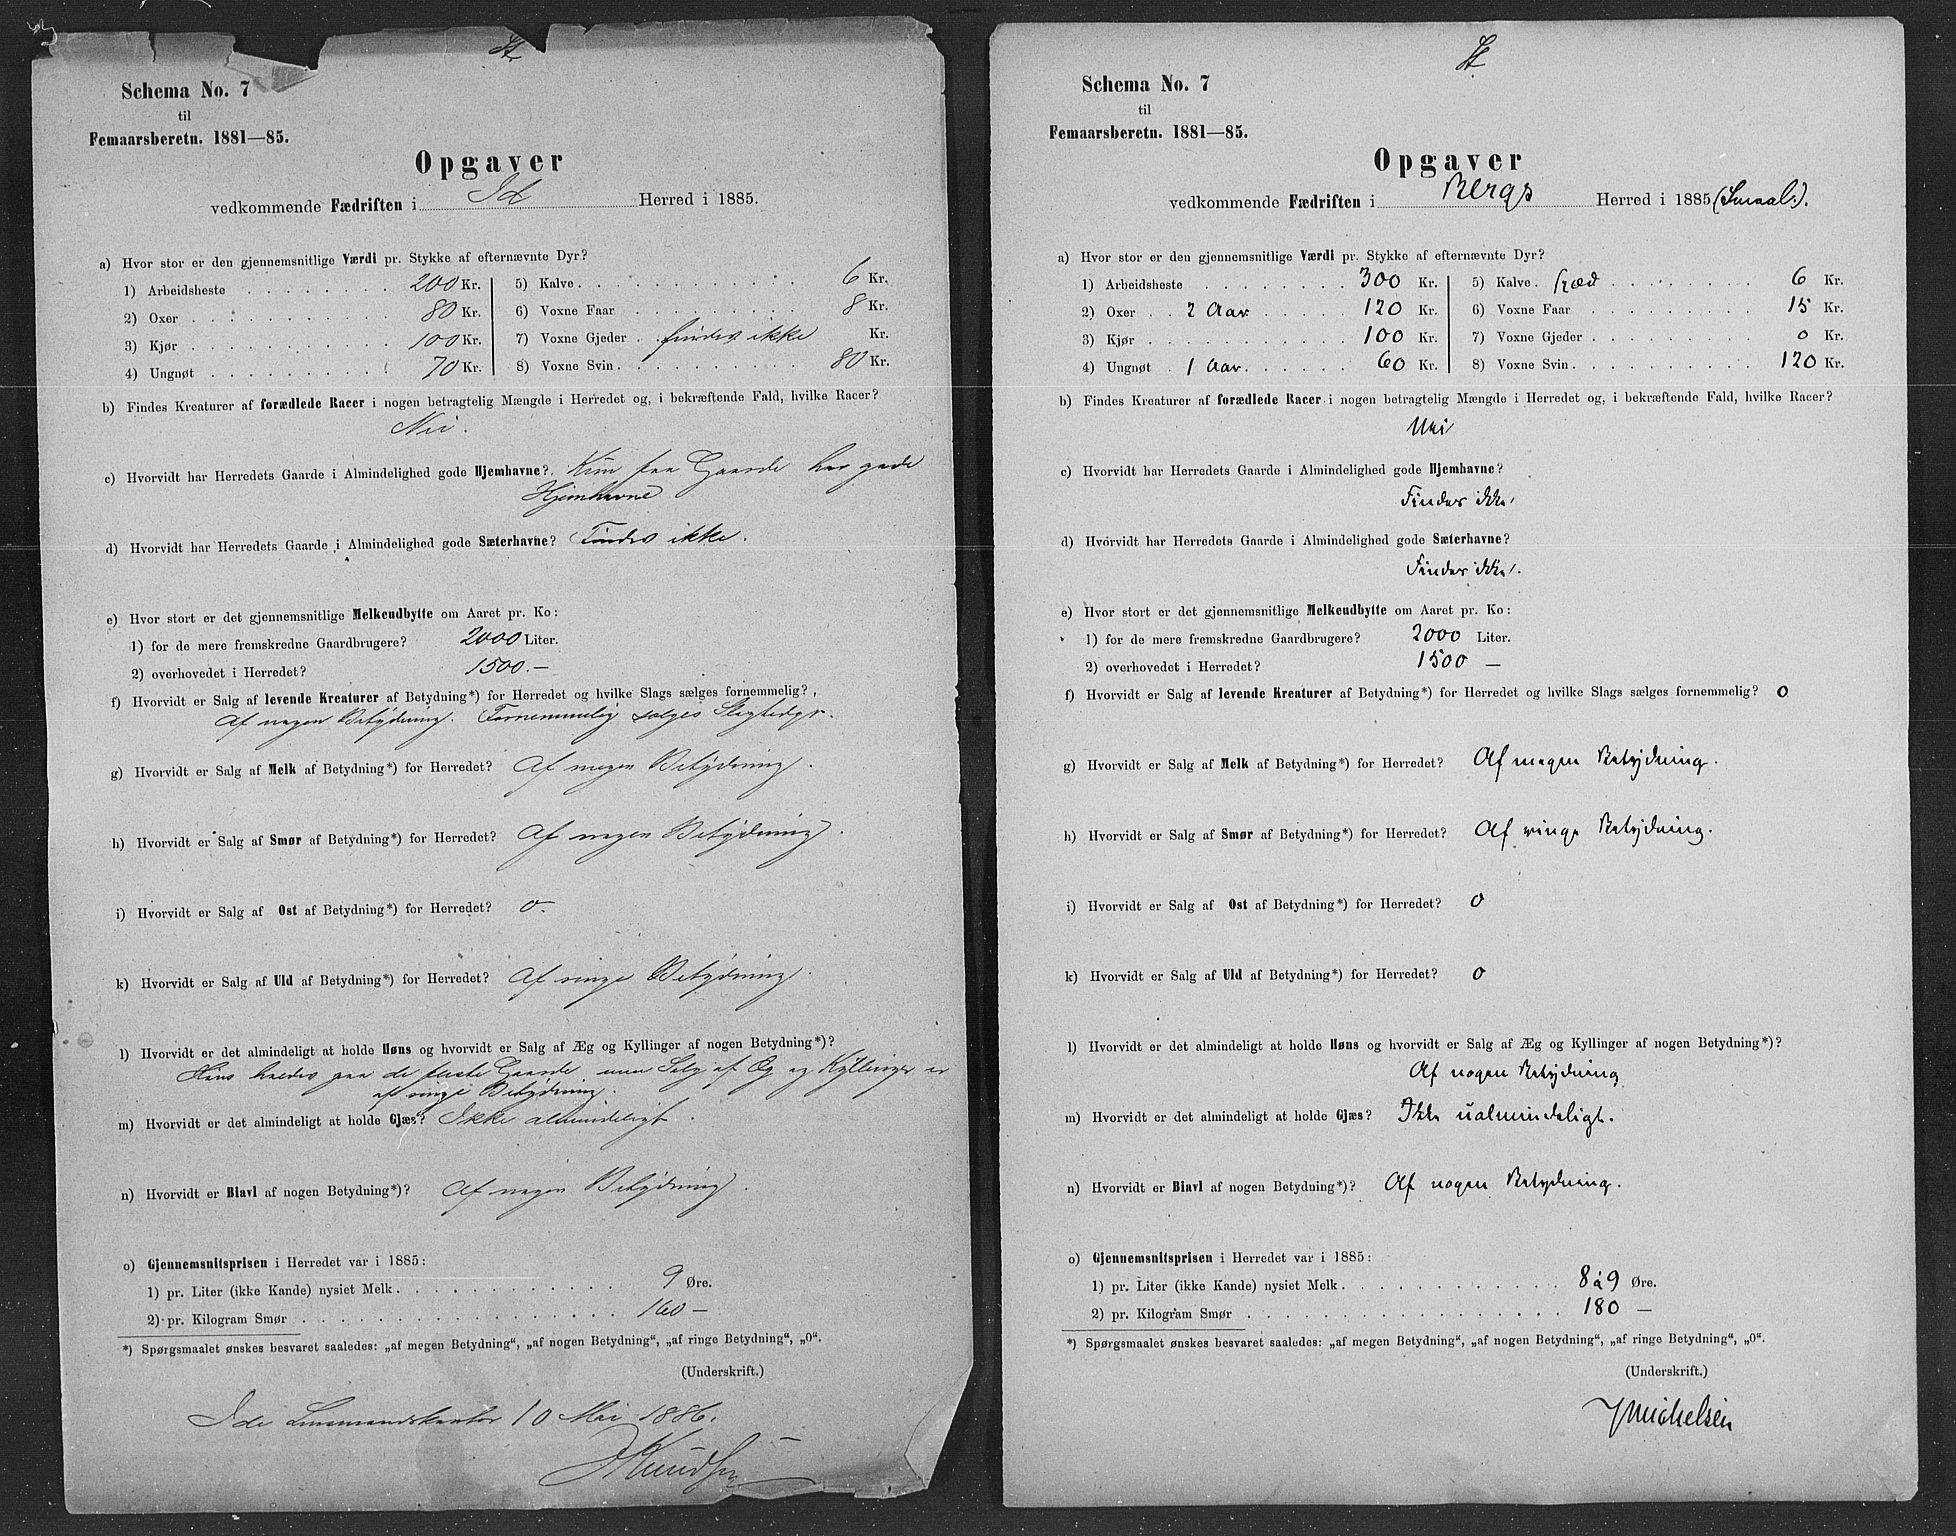 St.
Schema No. 7
til
Femaarsberetn. 1881—85.
Opgaver
vedkommende Fædriften i Id Herred i 1885.
a) Hvor stor er den gjennemsnitlige Værdi pr. Stykke af efternævnte Dyr?
1) Arbeidsheste 200 Kr.
2) Oxer 80 Kr.
3) Kjør 100 Kr.
4) Ungnøt 70 Kr.
5) Kalve 6 Kr.
6) Voxne Faar 8 Kr.
7) Voxne Gjeder findes ikke Kr.
8) Voxne Svin 80 Kr.
b) Findes Kreaturer af forædlede Racer i nogen betragtelig Mængde i Herredet og, i bekræftende Fald, hvilke Racer?
Nei.
c) Hvorvidt har Herredets Gaarde i Almindelighed gode Hjemhavne? Kun faa Gaarde har gode
Hjemhavne
d) Hvorvidt har Herredets Gaarde i Almindelighed gode Sæterhavne? Findes ikke.
e) Hvor stort er det gjennemsnitlige Melkeudbytte om Aaret pr. Ko:
1) for de mere fremskredne Gaardbrugere? 2000 Liter.
2) overhovedet i Herredet? 1500.—
f) Hvorvidt er Salg af levende Kreaturer af Betydning*) for Herredet og hvilke Slags sælges fornemmelig?
Af nogen Betydning. Fornemmelig sælges Slagtedyr.
g) Hvorvidt er Salg af Melk af Betydning*) for Herredet? Af megen Betydning.
h) Hvorvidt er Salg af Smør af Betydning*) for Herredet? Af nogen Betydning.
i) Hvorvidt er Salg af Ost af Betydning*) for Herredet? 0.
k) Hvorvidt er Salg af Uld af Betydning*) for Herredet? Af ringe Betydning.
l) Hvorvidt er det almindeligt at holde Høns og hvorvidt er Salg af Æg og Kyllinger af nogen Betydning*)?
Høns holdes paa de fleste Gaarde men Salg af Æg og Kyllinger er
af ringe Betydning.
m) Hvorvidt er det almindeligt at holde Gjæs? Ikke almindeligt.
n) Hvorvidt er Biavl af nogen Betydning*)? Af nogen Betydning.
o) Gjennemsnitsprisen i Herredet var i 1885:
1) pr. Liter (ikke Kande) nysiet Melk 9 Øre.
2) pr. Kilogram Smør 160 —
*) Spørgsmaalet ønskes besvaret saaledes: „af megen Betydning“, „af nogen Betydning“, „af ringe Betydning“, „0“.
(Underskrift.)
Ide Lensmandskontor 10 Mai 1886.
Knudsen
St.
Schema No. 7
til
Femaarsberetn. 1881—85.
Opgaver
vedkommende Fædriften i Bergs Herred i 1885 (Smaal.).
a) Hvor stor er den gjennemsnitlige Værdi pr. Stykke af efternævnte Dyr?
1) Arbeidsheste 300 Kr.
2) Oxer 2 Aar 120 Kr.
3) Kjør 100 Kr.
4) Ungnøt 1 Aar 60 Kr.
5) Kalve spæd 6 Kr.
6) Voxne Faar 15 Kr.
7) Voxne Gjeder 0 Kr.
8) Voxne Svin 120 Kr.
b) Findes Kreaturer af forædlede Racer i nogen betragtelig Mængde i Herredet og, i bekræftende Fald, hvilke Racer?
Nei
c) Hvorvidt har Herredets Gaarde i Almindelighed gode Hjemhavne?
Findes ikke.
d) Hvorvidt har Herredets Gaarde i Almindelighed gode Sæterhavne?
Findes ikke.
e) Hvor stort er det gjennemsnitlige Melkeudbytte om Aaret pr. Ko:
1) for de mere fremskredne Gaardbrugere? 2000 Liter.
2) overhovedet i Herredet? 1500 —
f) Hvorvidt er Salg af levende Kreaturer af Betydning*) for Herredet og hvilke Slags sælges fornemmelig? 0
g) Hvorvidt er Salg af Melk af Betydning*) for Herredet? Af megen Betydning.
h) Hvorvidt er Salg af Smør af Betydning*) for Herredet? Af ringe Betydning.
i) Hvorvidt er Salg af Ost af Betydning*) for Herredet? 0
k) Hvorvidt er Salg af Uld af Betydning*) for Herredet? 0
l) Hvorvidt er det almindeligt at holde Høns og hvorvidt er Salg af Æg og Kyllinger af nogen Betydning*)?
Af nogen Betydning
m) Hvorvidt er det almindeligt at holde Gjæs? Ikke ualmindeligt.
n) Hvorvidt er Biavl af nogen Betydning*)? Af nogen Betydning.
o) Gjennemsnitsprisen i Herredet var i 1885:
1) pr. Liter (ikke Kande) nysiet Melk 8 à 9 Øre.
2) pr. Kilogram Smør 180 —
*) Spørgsmaalet ønskes besvaret saaledes: „af megen Betydning“, „af nogen Betydning“, „af ringe Betydning“, „0“.
(Underskrift.)
Michelsen